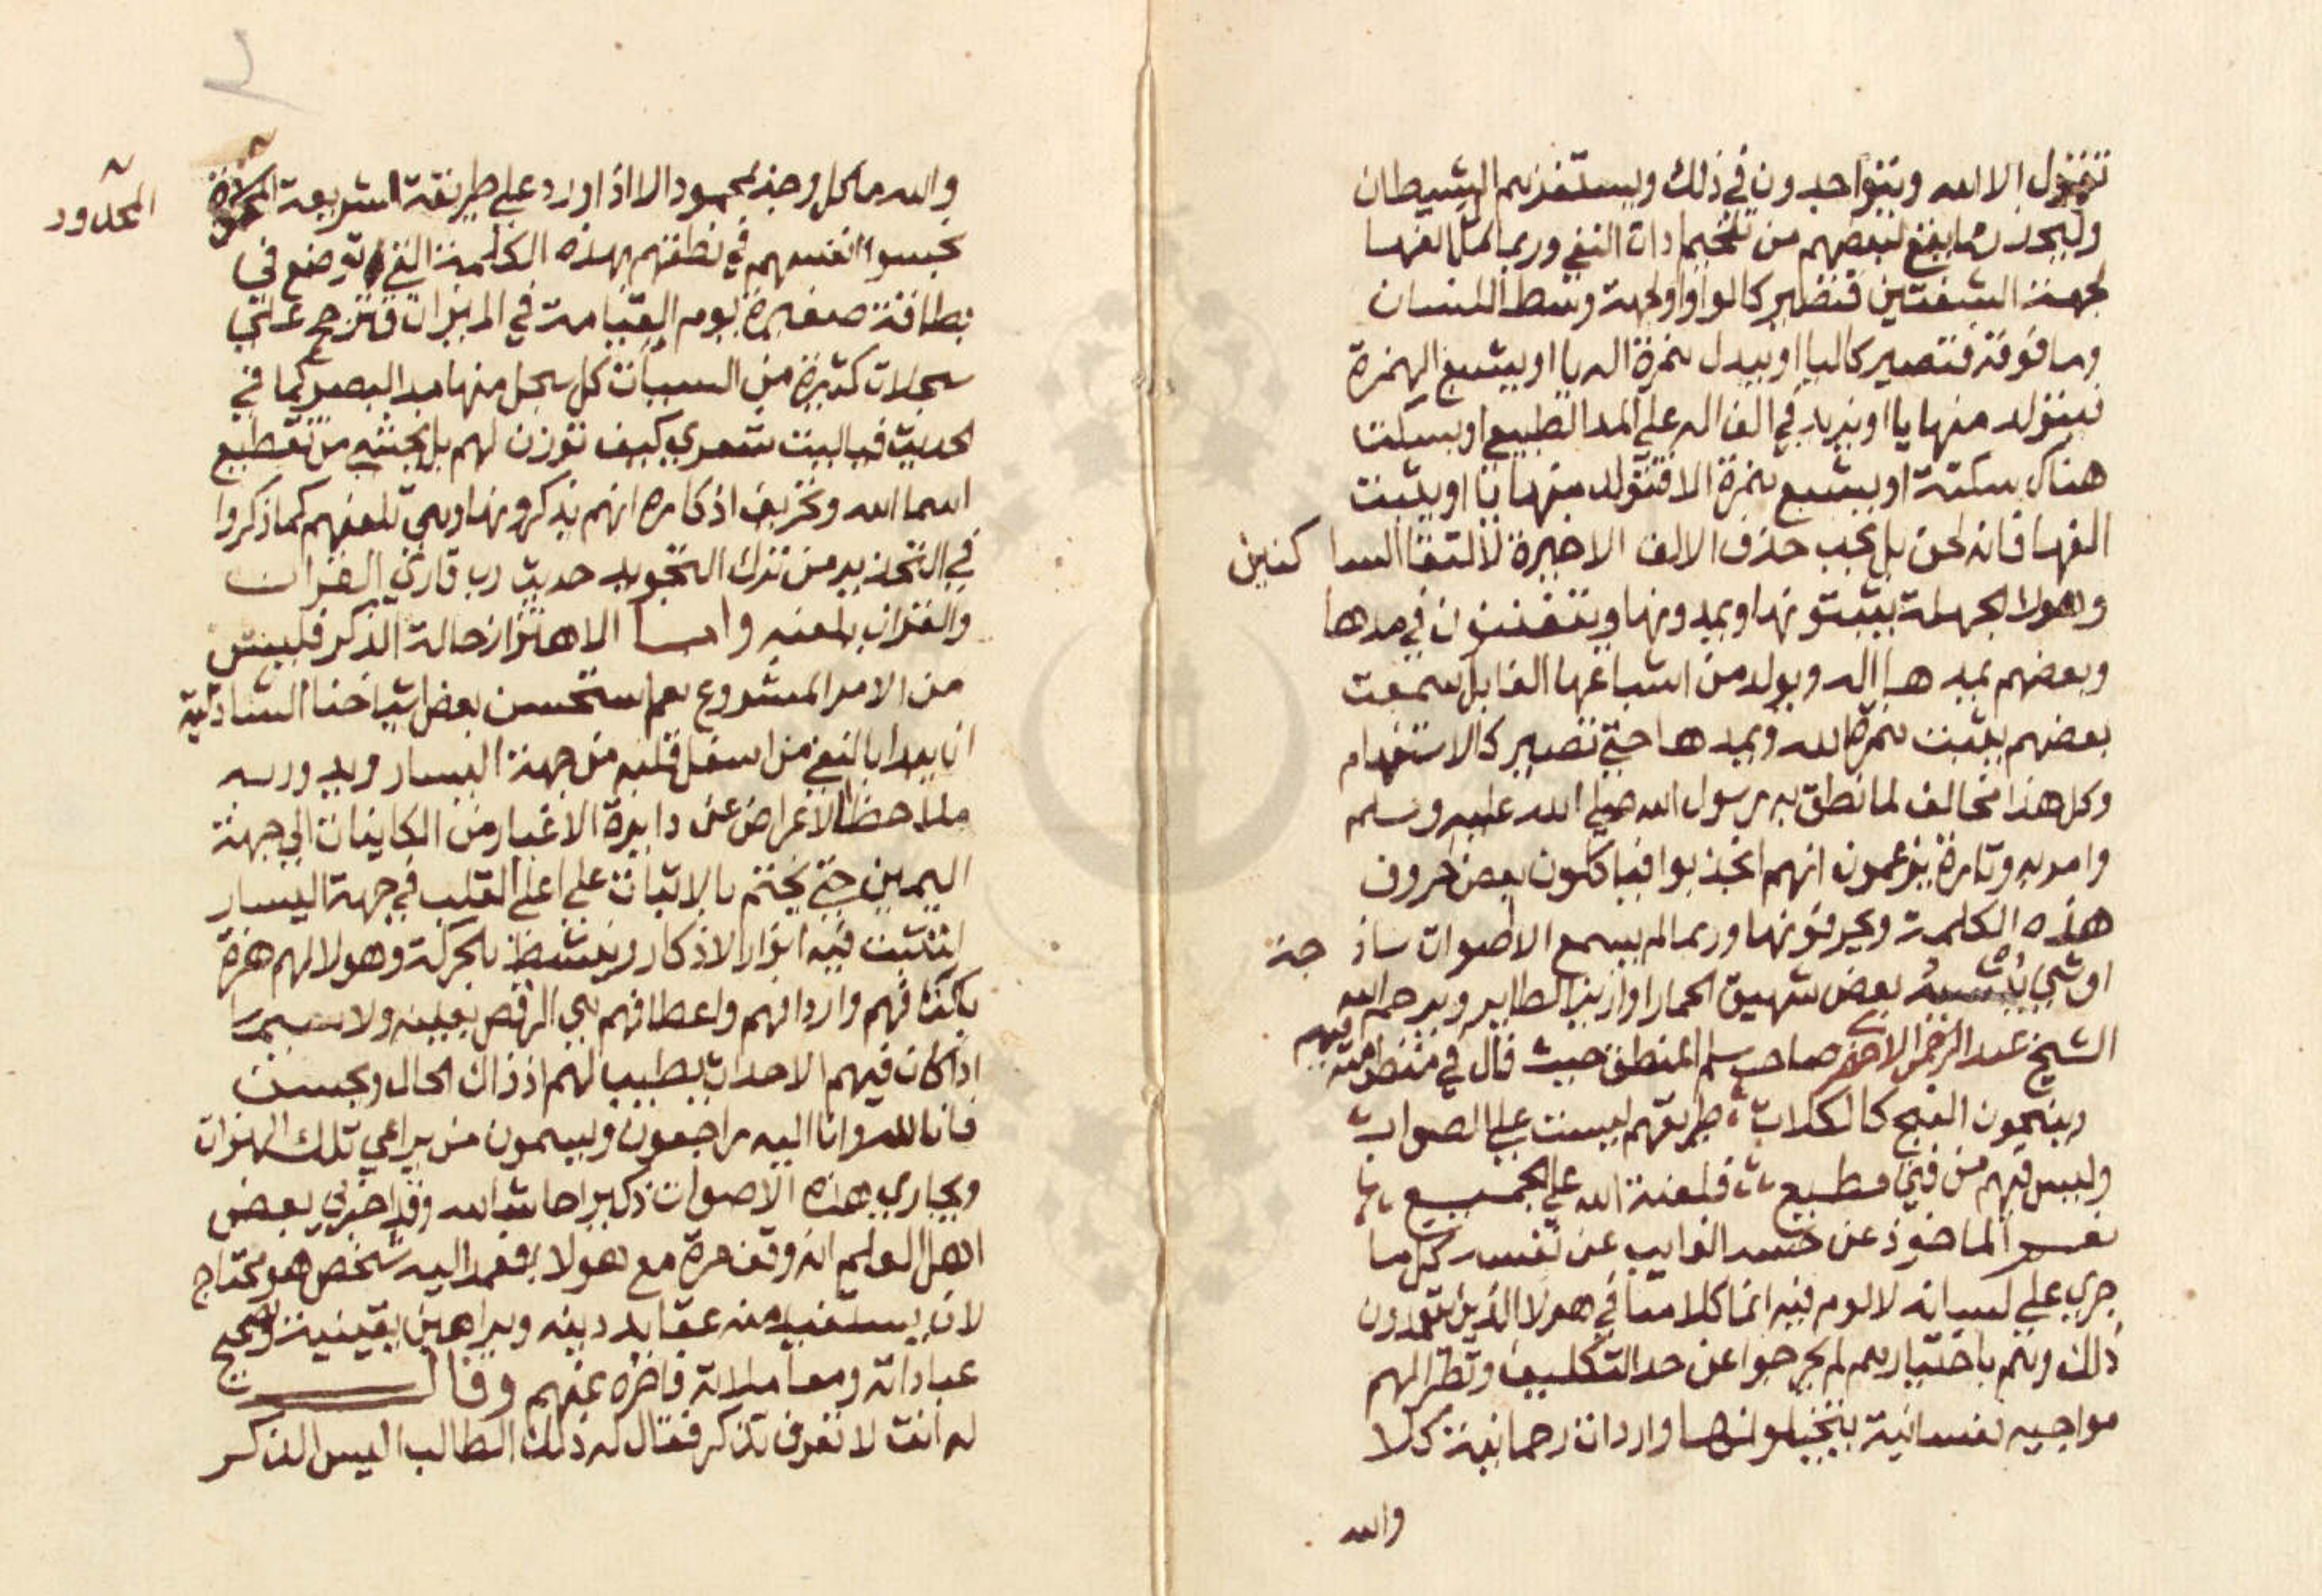 تقول الا الله ويتواجدون في ذلك ويستفزهم الشيطان
وليحذر مما يقع لبعضهم من تفخيم اداة النفي وربما امال الفها
لجهة الشفتين فتظهر كالواو او لجهة وسط اللسان
وما فوقه فتصير كاليا او يبدل همزة اله يا او يشبع الهمزة
فيتولد منها يا او يزيد في الف اله على المد الطبيعي او يسكت
هناك سكتة او يشبع همزة الا فيتولد منها يا او يثبت
الفها فانه لحن بل يجب حذف الالف الاخيرة لالتقا الساكنين
وهولا الجهلة يثبتونها ويمدونها ويتفننون في مدها
وبعضهم يمد ها اله ويولد من اشباعها الفا بل سمعت
بعضهم يثبت همزة الله ويمدها حتى تصير كالاستفهام
وكل هذا مخالف لما نطق به رسول الله صلى الله عليه وسلم
وامر به وتارة يزعمون انهم انجذبوا فياكلون بعض حروف
هذه الكلمة ويحرفونها وربما لم يسمع الا اصوات ساذجة
او شي يشبه بعض شهيق الحمار او ازيز الطاير ويرحم الله
الشيخ عبد الرحمن الاخضري صاحب سلم المنطق حيث قال في منظومته فيهم
وينبحون النبح كالكلاب طريقهم ليست على الصواب
وليس فيهم من فتى مطيع فلعنة الله على الجميع
نعم الماخوذ عن حسه الغايب عن نفسه كل ما
جرى على لسانه لا لوم فيه انما كلامنا في هولا الذين يتعمدون
ذلك وهم باختيارهم لم يخرجوا عن حد التكليف وتطرا لهم
مواجيد نفسانية يتخيلونها واردات رحمانية كلا
والله
والله ما كل وجد لمحمود الا اذا ورد على طريقة الشريعة المحمدية
المحدود
نجسوا انفسهم في نطقهم بهذه الكلمة التي توضع في
بطاقة صغيرة يوم القيامة في الميزان فترجح على
سجلات كثيرة من السييات كل سجل منها مد البصر كما في
الحديث فياليت شعري كيف توزن لهم بل يخشى من تقطيع
اسما الله وتحريف اذكاره انهم يذكرونها وهي تلعنهم كما ذكروا
في التحذير من ترك التجويد حديث رب قاري القران
والقران يلعنه واما الاهتزاز حالة الذكر فليس
من الامر المشروع نعم استحسن بعض اشياخنا الشاذلية
ان يبدا بالنفي من اسفل قلبه من جهة اليسار ويدور به
ملاحظا الاعراض عن دايرة الاغيار من الكاينات الى جهة
اليمين حتى يختم بالاثبات على اعلى القلب في جهة اليسار
لتثبت فيه انوار الاذكار وينشط بالحركة وهولا لهم هزة
باكتافهم واردافهم واعطافهم هي الرقص بعينه ولا سيما
اذا كان فيهم الاحداث يطيب لهم اذ ذاك الحال ويحسن
فانا لله وانا اليه راجعون ويسمون من يراعي تلك الهزات
ويجاري هذه الاصوات ذكيرا حاشا لله وقد اخبرني بعض
اهل العلم انه وقف مرة مع هولا فعمد اليه شخص هو محتاج
لان يستفيد منه عقايد دينه وبراهين يقينية وتصحيح
عباداته ومعاملاته فاخره عنهم وقال
له انت لا تعرف تذكر فقال له ذلك الطالب اليس الذكر